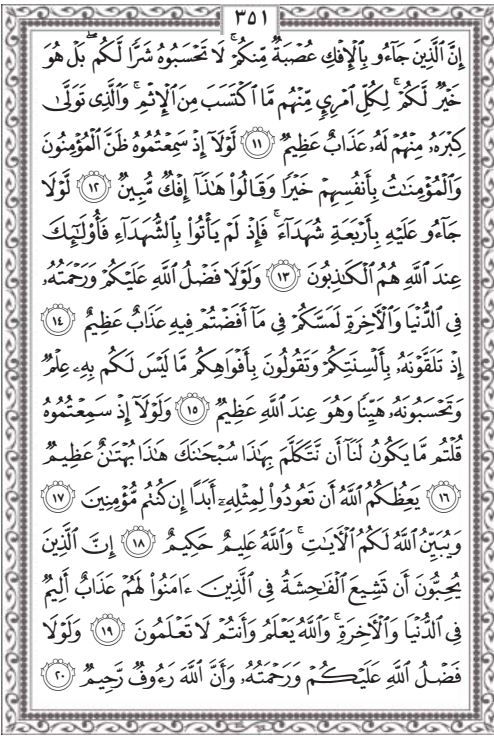 ٣٥١
إِنَّ ٱلَّذِينَ جَآءُو بِٱلْإِفْكِ عُصْبَةٌ مِّنكُمْ ۚ لَا تَحْسَبُوهُ شَرًّا لَّكُم ۖ بَلْ هُوَ
خَيْرٌ لَّكُمْ ۚ لِكُلِّ ٱمْرِئٍ مِّنْهُم مَّا ٱكْتَسَبَ مِنَ ٱلْإِثْمِ ۚ وَٱلَّذِى تَوَلَّىٰ
كِبْرَهُۥ مِنْهُمْ لَهُۥ عَذَابٌ عَظِيمٌ ١١ لَّوْلَآ إِذْ سَمِعْتُمُوهُ ظَنَّ ٱلْمُؤْمِنُونَ
وَٱلْمُؤْمِنَٰتُ بِأَنفُسِهِمْ خَيْرًا وَقَالُوا۟ هَٰذَآ إِفْكٌ مُّبِينٌ ١٢ لَّوْلَا
جَآءُو عَلَيْهِ بِأَرْبَعَةِ شُهَدَآءَ ۚ فَإِذْ لَمْ يَأْتُوا۟ بِٱلشُّهَدَآءِ فَأُو۟لَٰٓئِكَ
عِندَ ٱللَّهِ هُمُ ٱلْكَٰذِبُونَ ١٣ وَلَوْلَا فَضْلُ ٱللَّهِ عَلَيْكُمْ وَرَحْمَتُهُۥ
فِى ٱلدُّنْيَا وَٱلْءَاخِرَةِ لَمَسَّكُمْ فِى مَآ أَفَضْتُمْ فِيهِ عَذَابٌ عَظِيمٌ ١٤
إِذْ تَلَقَّوْنَهُۥ بِأَلْسِنَتِكُمْ وَتَقُولُونَ بِأَفْوَاهِكُم مَّا لَيْسَ لَكُم بِهِۦ عِلْمٌ
وَتَحْسَبُونَهُۥ هَيِّنًا وَهُوَ عِندَ ٱللَّهِ عَظِيمٌ ١٥ وَلَوْلَآ إِذْ سَمِعْتُمُوهُ
قُلْتُم مَّا يَكُونُ لَنَآ أَن نَّتَكَلَّمَ بِهَٰذَا سُبْحَٰنَكَ هَٰذَا بُهْتَٰنٌ عَظِيمٌ
١٦ يَعِظُكُمُ ٱللَّهُ أَن تَعُودُوا۟ لِمِثْلِهِۦٓ أَبَدًا إِن كُنتُم مُّؤْمِنِينَ ١٧
وَيُبَيِّنُ ٱللَّهُ لَكُمُ ٱلْءَايَٰتِ ۚ وَٱللَّهُ عَلِيمٌ حَكِيمٌ ١٨ إِنَّ ٱلَّذِينَ
يُحِبُّونَ أَن تَشِيعَ ٱلْفَٰحِشَةُ فِى ٱلَّذِينَ ءَامَنُوا۟ لَهُمْ عَذَابٌ أَلِيمٌ
فِى ٱلدُّنْيَا وَٱلْءَاخِرَةِ ۚ وَٱللَّهُ يَعْلَمُ وَأَنتُمْ لَا تَعْلَمُونَ ١٩ وَلَوْلَا
فَضْلُ ٱللَّهِ عَلَيْكُمْ وَرَحْمَتُهُۥ وَأَنَّ ٱللَّهَ رَءُوفٌ رَّحِيمٌ ٢٠